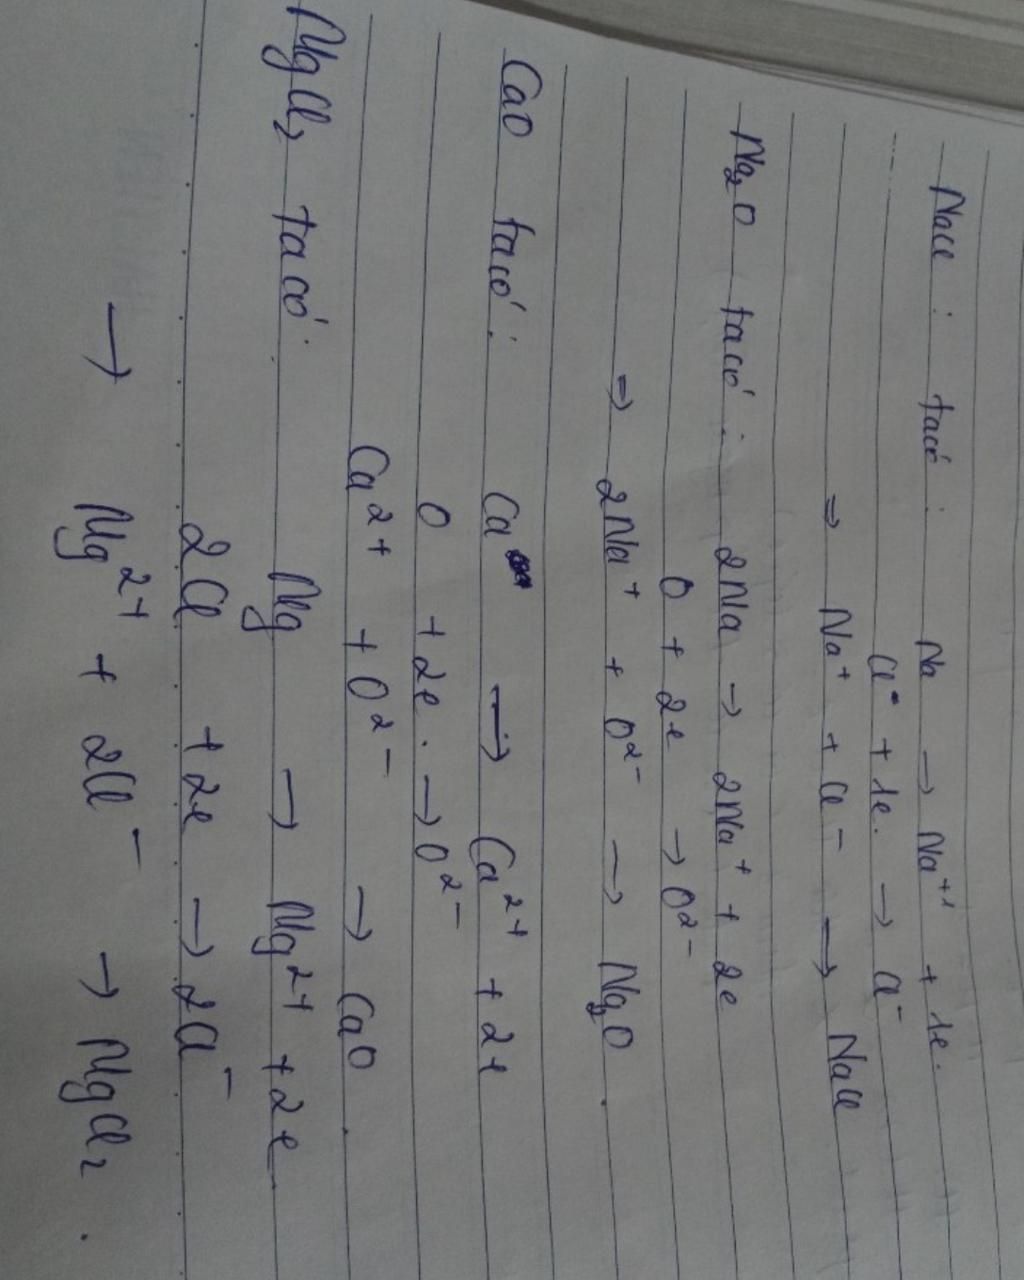 NaCl : ta có : Na → Na⁺¹ + 1e.
Cl + 1e. → Cl⁻
⇒ Na⁺ + Cl⁻ → NaCl
Na₂O ta có : 2Na → 2Na⁺ + 2e
O + 2e → O²⁻
⇒ 2Na⁺ + O²⁻ → Na₂O .
CaO ta có : Ca → Ca²⁺ + 2e
O + 2e . → O²⁻
Ca²⁺ + O²⁻ → CaO .
MgCl₂ ta có : Mg → Mg²⁺ + 2e
2Cl + 2e → 2Cl⁻
→ Mg²⁺ + 2Cl⁻ → MgCl₂ .